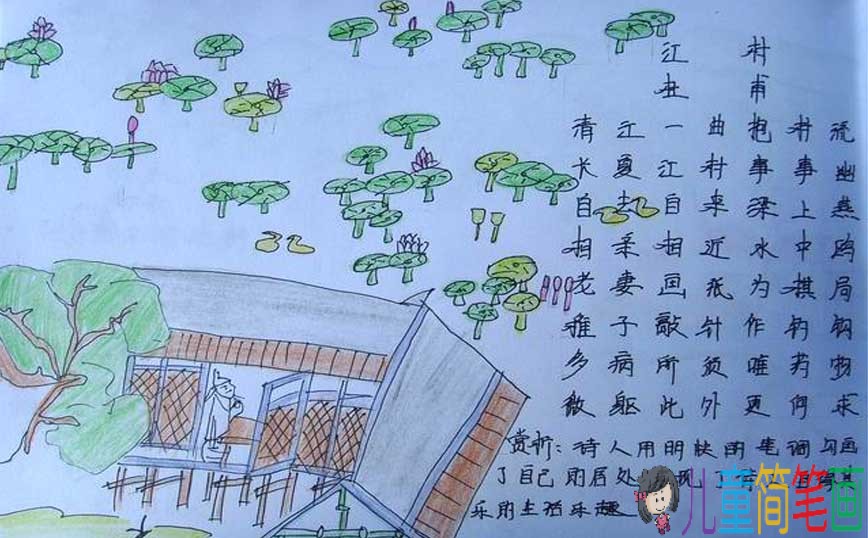 江村
杜甫
清江一曲抱村流
长夏江村事事幽
自去自来梁上燕
相亲相近水中鸥
老妻画纸为棋局
稚子敲针作钓钩
多病所须唯药物
微躯此外更何求
赏析：诗人用明快的笔调勾画
了自己的居处 现了
乐的生活乐趣
儿童简笔画